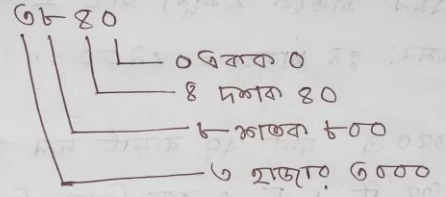 ৩৮৪০
০ একক ০
৪ দশক ৪০
৮ শতক ৮০০
৩ হাজার ৩০০০